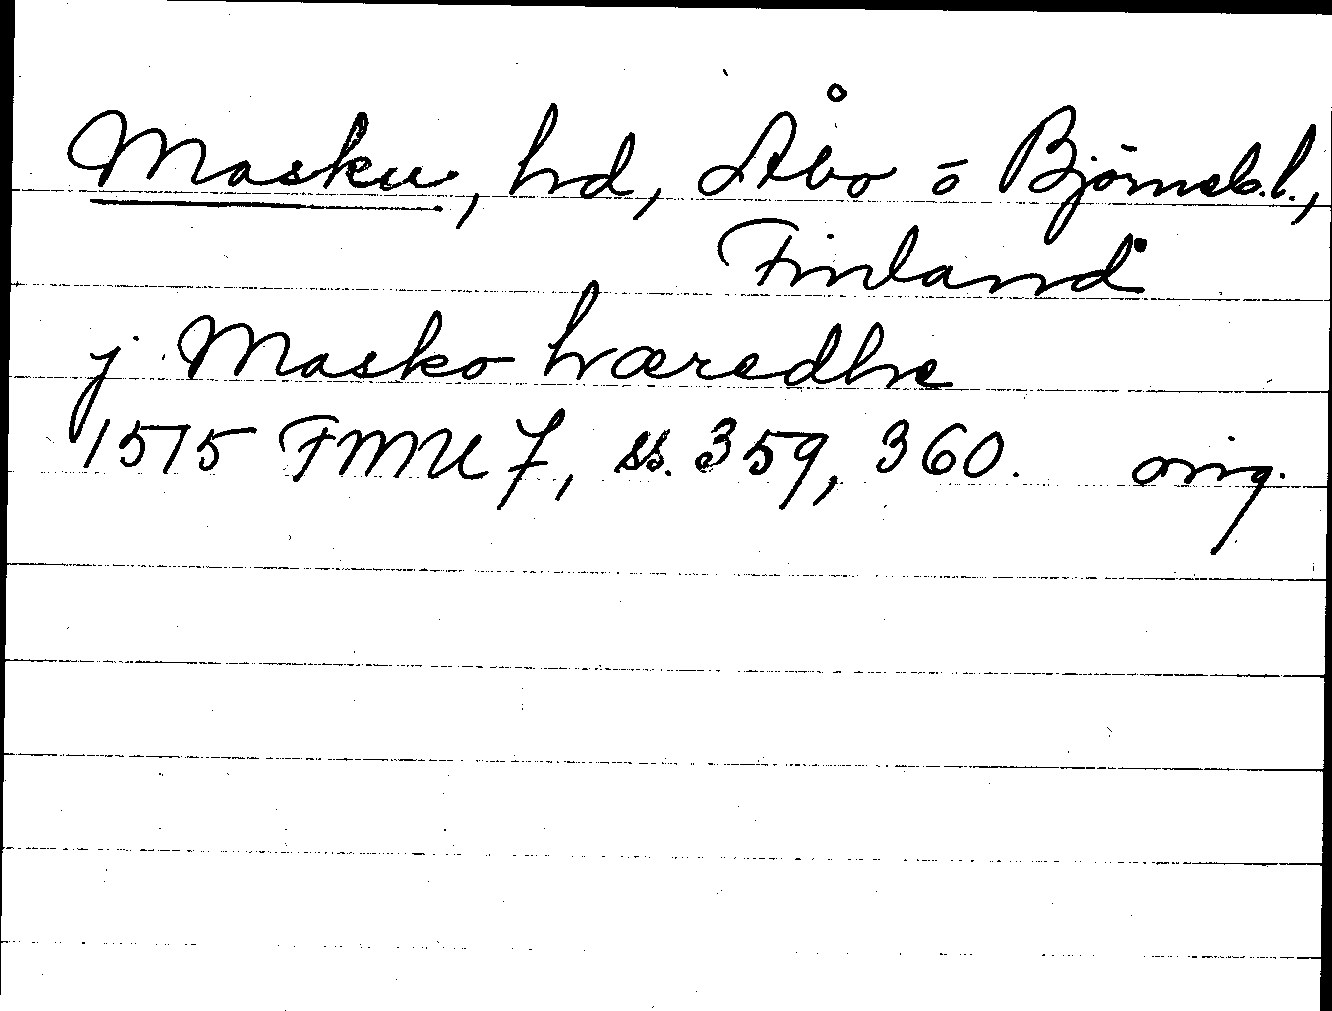 Masku, hd, Åbo o Björneb.l.,
Finland
j Masko hæredhe
1515 FMU 7, ss. 359, 360. orig.